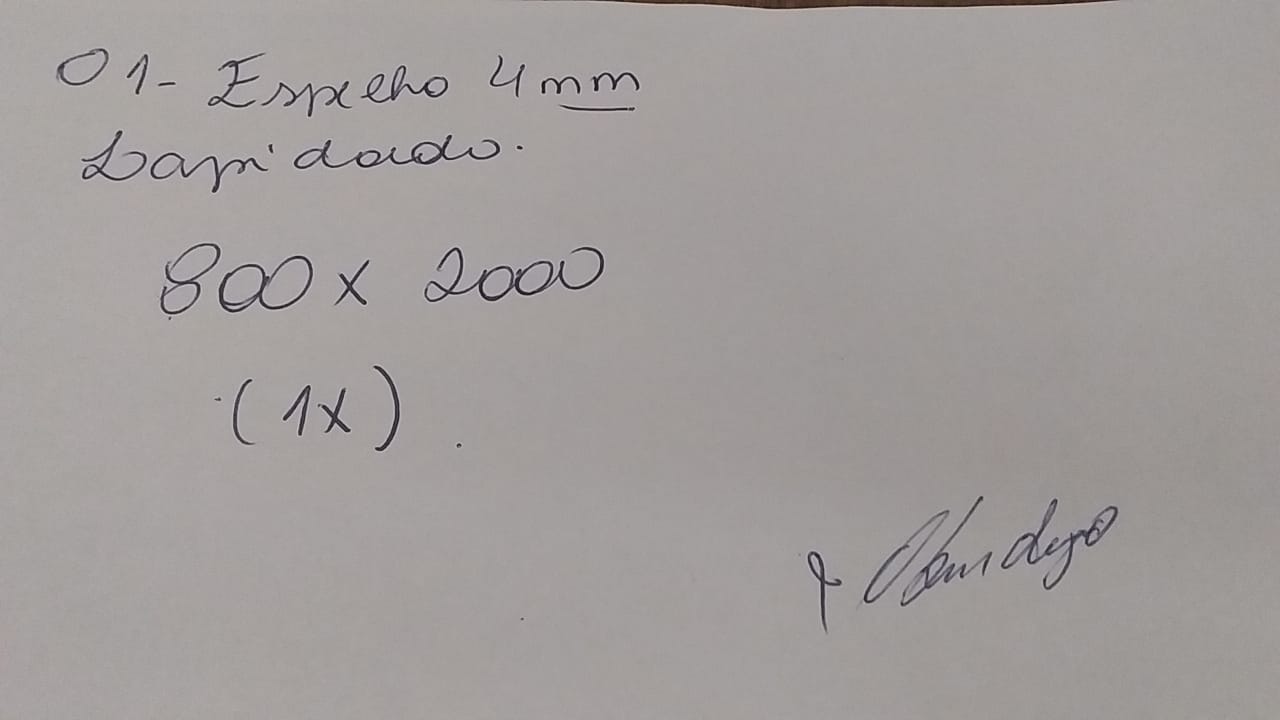 01- Espelho 4mm
Lapidado.
800 x 2000
(1x).